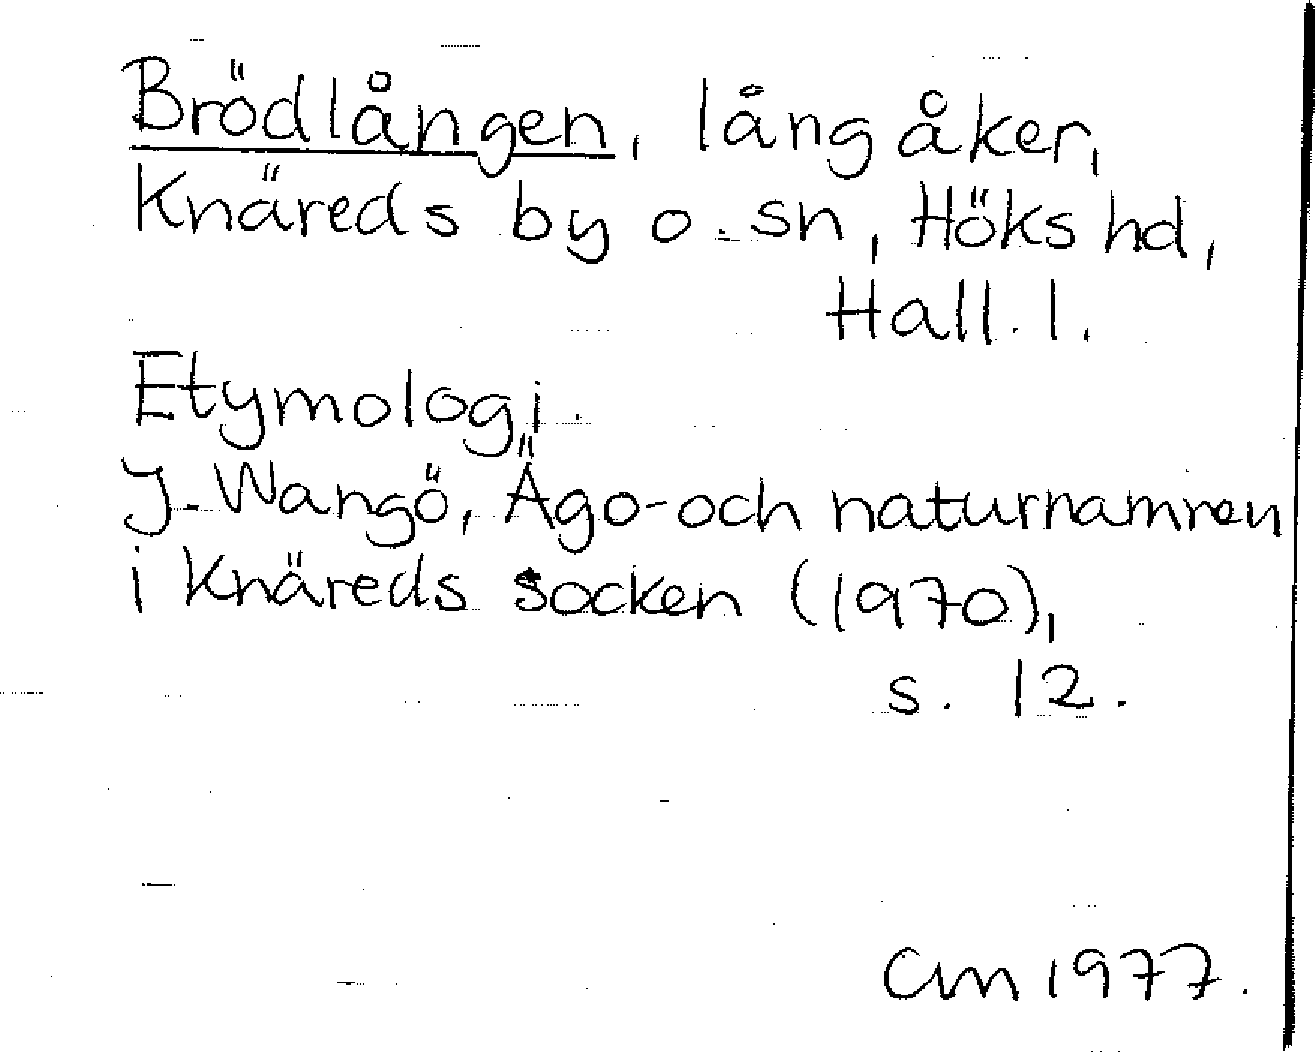 Brödlången, lång åker,
Knäreds by o. sn, Höks hd,
Hall. l.
Etymologi.
J. Wangö, Ägo- och naturnamnen
i Knäreds socken (1970),
s. 12.
CM 1977.